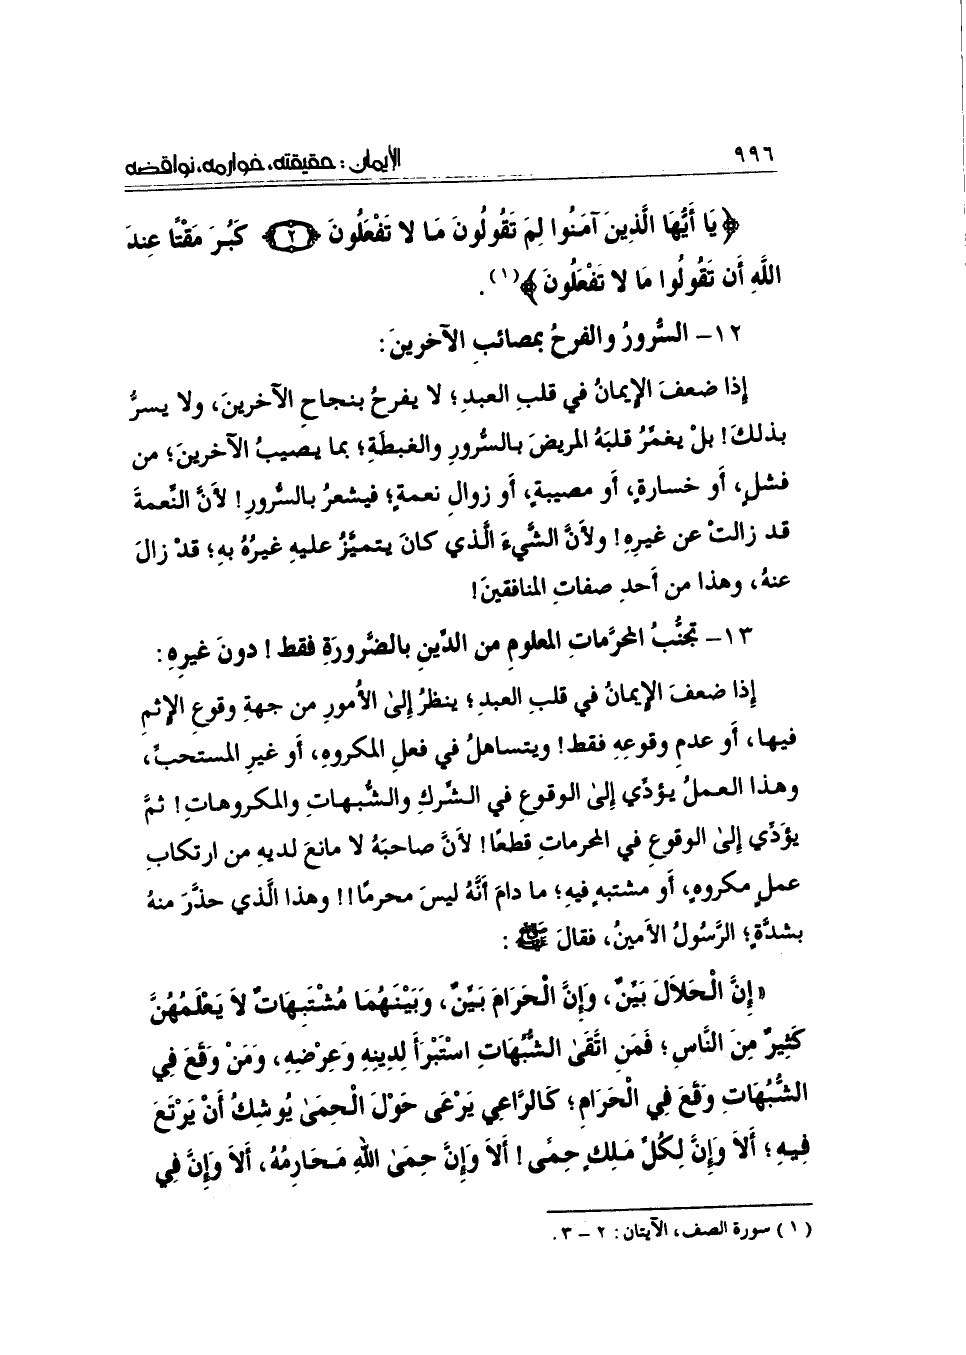 ٩٩٦ الإيمان: حقيقته، خوارمه، نواقضه
﴿يَا أَيُّهَا الَّذِينَ آمَنُوا لِمَ تَقُولُونَ مَا لا تَفْعَلُونَ ﴿٢﴾ كَبُرَ مَقْتًا عِندَ
اللَّهِ أَن تَقُولُوا مَا لا تَفْعَلُونَ﴾(١).
١٢- السُّرورُ والفرحُ بمصائبِ الآخرينَ:
إذا ضعفَ الإيمانُ في قلبِ العبدِ؛ لا يفرحُ بنجاحِ الآخرينَ، ولا يسرُّ
بذلكَ! بلْ يغمَّرُ قلبَهُ المريضَ بالسُّرورِ والغبطَةِ؛ بما يصيبُ الآخرينَ؛ من
فشلٍ، أو خسارةٍ، أو مصيبةٍ، أو زوالِ نعمةٍ؛ فيشعرُ بالسُّرورِ! لأنَّ النِّعمةَ
قد زالتْ عن غيرِهِ! ولأنَّ الشَّيءَ الَّذي كانَ يتميَّزُ عليهِ غيرُهُ بهِ؛ قدْ زالَ
عنهُ، وهذا من أحدِ صفاتِ المنافقينَ!
١٣- تجنُّبُ المحرَّماتِ المعلومِ من الدِّينِ بالضَّرورَةِ فقط! دونَ غيرِهِ:
إذا ضعفَ الإيمانُ في قلبِ العبدِ؛ ينظرُ إلىٰ الأمورِ من جهةِ وقوعِ الإثمِ
فيها، أو عدمِ وقوعِهِ فقط! ويتساهلُ في فعلِ المكروهِ، أو غيرِ المستحبِّ،
وهذا العملُ يؤدِّي إلىٰ الوقوعِ في الشَّركِ والشُّبهاتِ والمكروهاتِ! ثمَّ
يؤدِّي إلىٰ الوقوعِ في المحرماتِ قطعًا! لأنَّ صاحبَهُ لا مانعَ لديهِ من ارتكابِ
عملٍ مكروهٍ، أو مشتبهٍ فيهِ؛ ما دامَ أنَّهُ ليسَ محرمًا!! وهذا الَّذي حذَّرَ منهُ
بشدَّةٍ؛ الرَّسُولُ الأمينُ، فقالَ ﷺ :
«إِنَّ الْحَلاَلَ بَيِّنٌ، وَإِنَّ الْحَرَامَ بَيِّنٌ، وَبَيْنَهُمَا مُشْتَبِهَاتٌ لاَ يَعْلَمُهُنَّ
كَثِيرٌ مِنَ النَّاسِ؛ فَمَنِ اتَّقَىٰ الشُّبُهَاتِ اسْتَبْرَأَ لِدِينِهِ وَعِرْضِهِ، وَمَنْ وَقَعَ فِي
الشُّبُهَاتِ وَقَعَ فِي الْحَرَامِ؛ كَالرَّاعِي يَرْعَى حَوْلَ الْحِمَىٰ يُوشِكُ أَنْ يَرْتَعَ
فِيهِ؛ أَلاَ وَإِنَّ لِكُلِّ مَلِكٍ حِمًى! أَلاَ وَإِنَّ حِمَىٰ اللهِ مَحَارِمُهُ، أَلاَ وَإِنَّ فِي
(١) سورة الصف، الآيتان: ٢ – ٣.